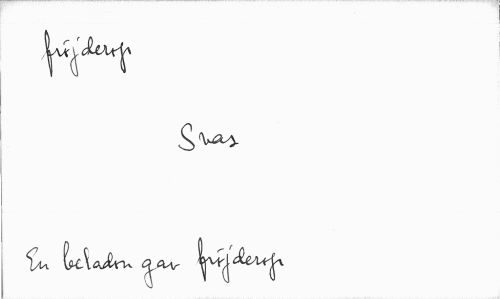 fröjderop
Snas
En beladon gav fröjderop